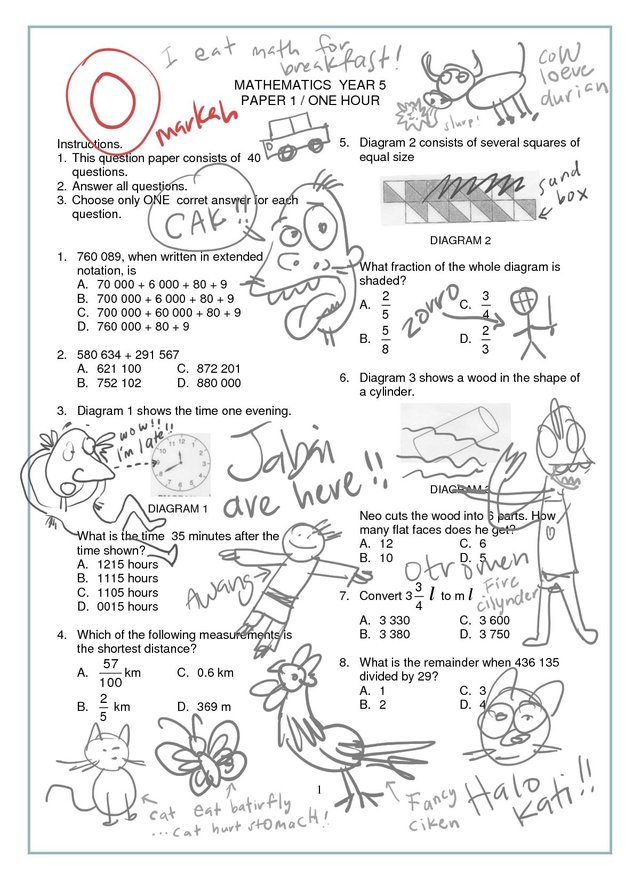 I eat math for
breakfast!
MATHEMATICS YEAR 5
PAPER 1 / ONE HOUR
markah
slurp!
cow
loeve
durian
Instructions.
1. This question paper consists of 40
questions.
2. Answer all questions.
3. Choose only ONE corret answer for each
question.
CAK!!
1. 760 089, when written in extended
notation, is
A. 70 000 + 6 000 + 80 + 9
B. 700 000 + 6 000 + 80 + 9
C. 700 000 + 60 000 + 80 + 9
D. 760 000 + 80 + 9
2. 580 634 + 291 567
A. 621 100 C. 872 201
B. 752 102 D. 880 000
3. Diagram 1 shows the time one evening.
wow!!
I'm late!!
12
11
10
9
8
7
6
5
4
3
2
1
DIAGRAM 1
What is the time 35 minutes after the
time shown?
A. 1215 hours
B. 1115 hours
C. 1105 hours
D. 0015 hours
Jabin
are here!!
Awang
4. Which of the following measurements is
the shortest distance?
A. 57/100 km C. 0.6 km
B. 2/5 km D. 369 m
cat eat batirfly
...cat hurt stomach!!
5. Diagram 2 consists of several squares of
equal size
sand
box
DIAGRAM 2
What fraction of the whole diagram is
shaded?
A. 2/5 C. 3/4
B. 5/8 D. 2/3
zorro
6. Diagram 3 shows a wood in the shape of
a cylinder.
DIAGRAM 3
Neo cuts the wood into 6 parts. How
many flat faces does he get?
A. 12 C. 6
B. 10 D. 5
Otromen
Fire
cilynder
7. Convert 3 3/4 l to m l
A. 3 330 C. 3 600
B. 3 380 D. 3 750
8. What is the remainder when 436 135
divided by 29?
A. 1 C. 3
B. 2 D. 4
Fancy
ciken
Halo
Kati!!
1